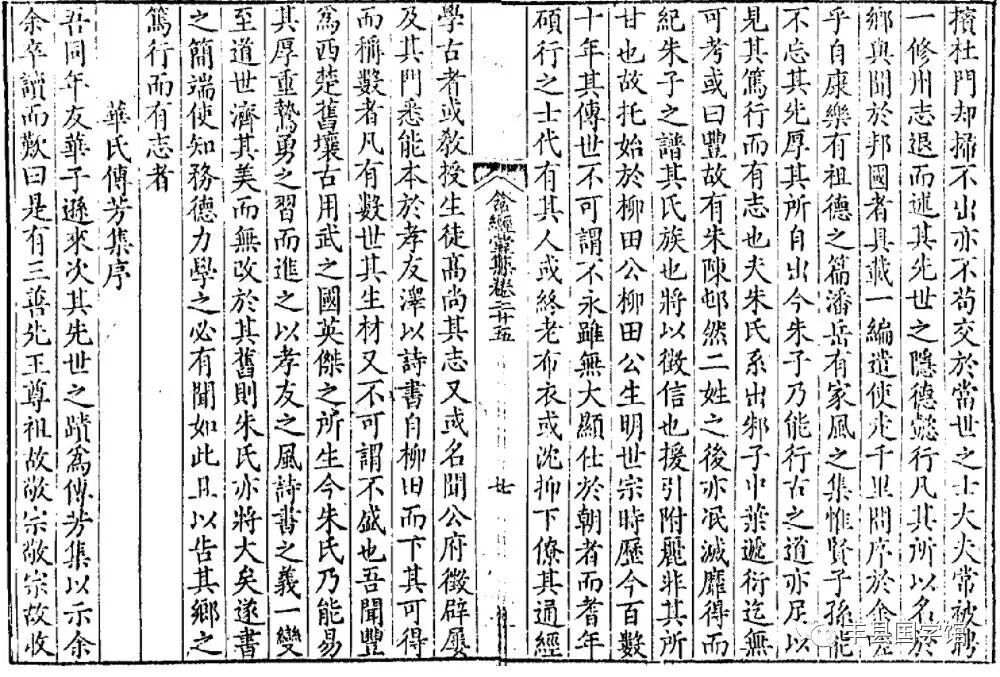 擯杜門却掃不出亦不苟交於當世之士大夫常被聘
一修州志退而述其先世之隱德懿行凡其所以名於
鄉與聞於邦國者具載一編遣使走千里問序於余嗟
乎自康樂有祖德之篇潘岳有家風之集惟賢子孫能
不忘其先厚其所自出今朱子乃能行古之道亦足以
見其篤行而有志也夫朱氏系出邾子中葉遞衍迄無
可考或曰豐故有朱陳邨然二姓之後亦泯滅靡得而
紀朱子之譜其氏族也將以徵信也援引附麗非其所
甘也故托始於柳田公柳田公生明世宗時歷今百數
十年其傳世不可謂不永雖無大顯仕於朝者而耆年
碩行之士代有其人或終老布衣或沈抑下僚其通經
經堂集卷二十五
廿
學古者或教授生徒高尚其志又或名聞公府徵辟屢
及其門悉能本於孝友澤以詩書自柳田而下其可得
而稱數者凡有數世其生材又不可謂不盛也吾聞豐
爲西楚舊壤古用武之國英傑之所生今朱氏乃能易
其厚重驁勇之習而進之以孝友之風詩書之義一變
至道世濟其美而無改於其舊則朱氏亦將大矣遂書
之簡端使知務德力學之必有聞如此且以告其鄉之
篤行而有志者
華氏傳芳集序
吾同年友華子遜來次其先世之蹟爲傳芳集以示余
余卒讀而歎曰是有三善先王尊祖故敬宗敬宗故收
丰县国学馆